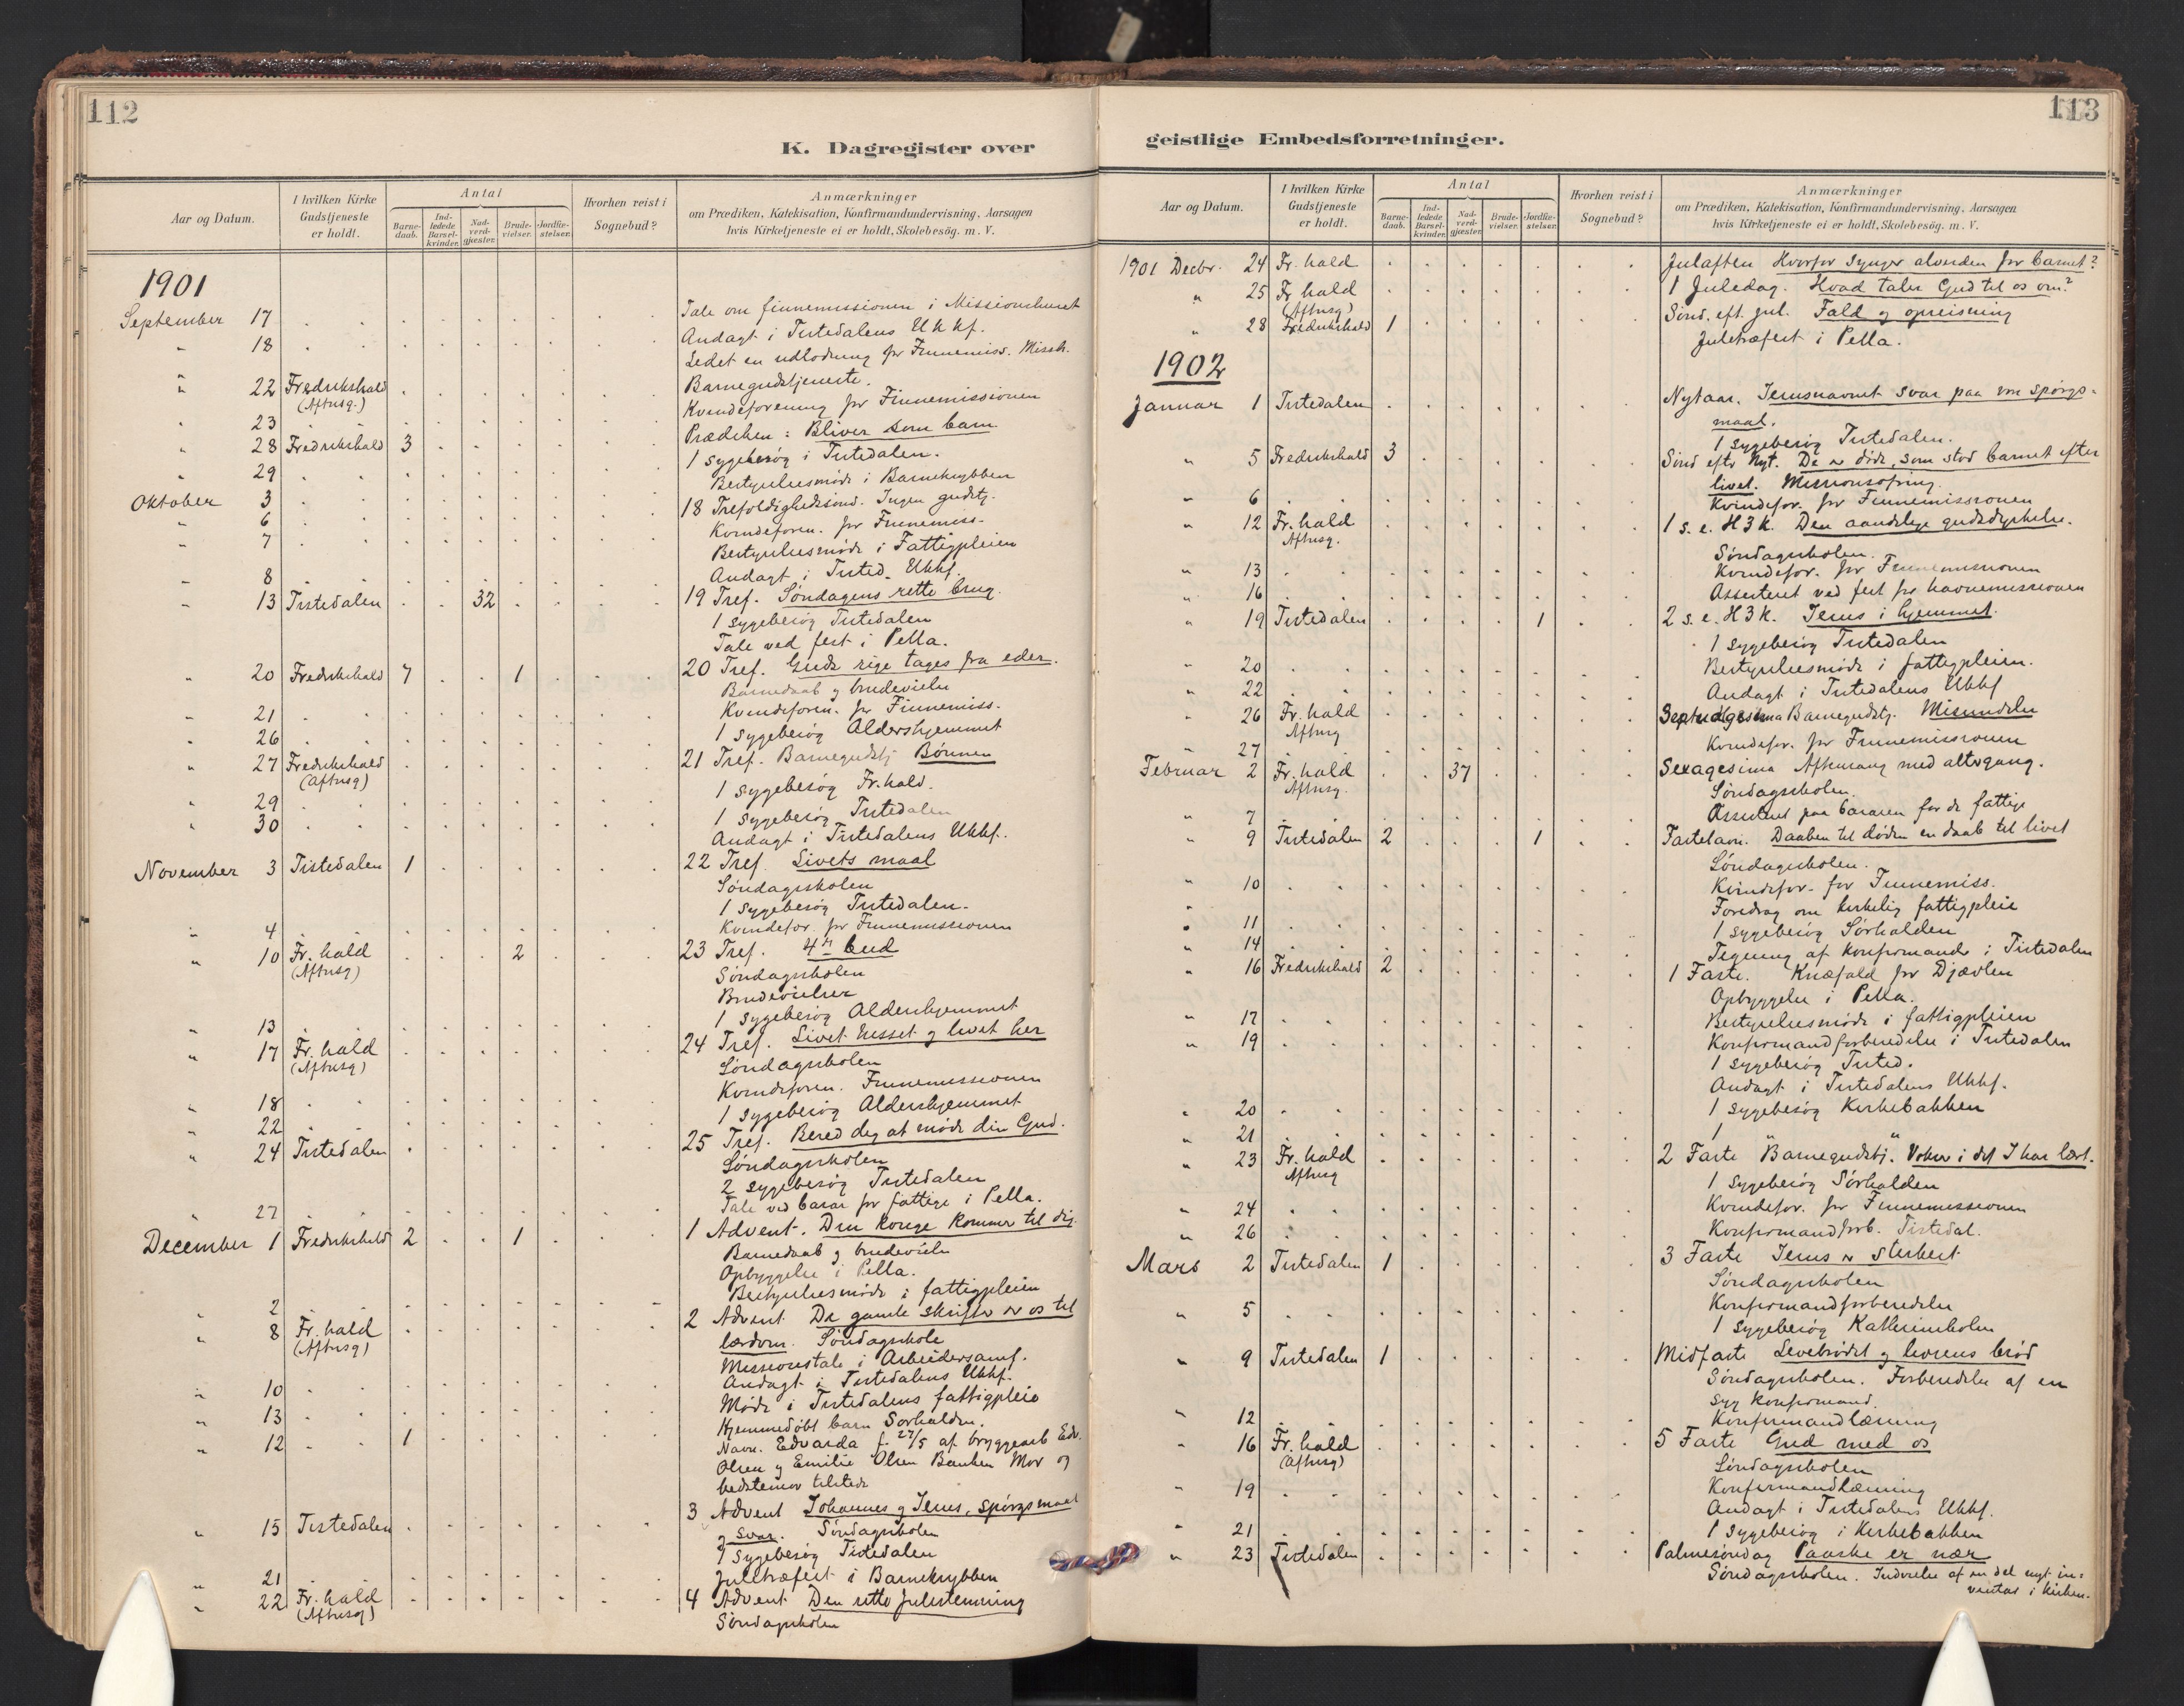 112
K. Dagregister over
Aar og Datum.
I hvilken Kirke Gudstjeneste er holdt.
Antal
Barne-daab.
Ind-ledede Barsel-kvinder.
Nad-verd-gjæster.
Brude-vielser.
Jordfæ-stelser.
Hvorhen reist i Sognebud?
Anmærkninger
om Prædiken, Katekisation, Konfirmandundervisning, Aarsagen
hvis Kirketjeneste ei er holdt, Skolebesög. m. V.
1901
September 17 Tale om finnemissionen i Missionshuset
" 18 Andagt i Tistedalens Ukkf.
Ledet en udlodning for Finnemiss. Missh.
" 22 Fredrikshald (Aftnsg.) Barnegudstjeneste.
" 23 Kvindeforening for Finnemissionen
" 28 Fredrikshald 3 Prædiken: Bliver som barn
" 29 1 sygebesøg i Tistedalen.
Oktober 3 Bestyrelsesmøde i Barnekrybben
" 6 18 Trefoldighedssønd. Ingen gudstj.
" 7 Kvindeforen. for Finnemiss.
Bestyrelsesmøde i Fattigpleien
" 8 Andagt i Tisted. Ukkf.
" 13 Tistedalen 32 19 Tref. Søndagens rette brug.
1 sygebesøg Tistedalen
Tale ved fest i Pella.
" 20 Fredrikshald 7 1 20 Tref. Guds rige tages fra eder.
Barnedaab og brudevielse
" 21 Kvindeforen. for Finnemiss.
" 26 1 sygebesøg Aldershjemmet
" 27 Fredrikshald (Aftnsg) 21 Tref. Barnegudstj Bønnen
1 sygebesøg Fr.hald.
" 29 1 sygebesøg Tistedalen
" 30 Andagt i Tistedalens Ukkf.
November 3 Tistedalen 1 22 Tref. Livets maal
Søndagsskolen
1 sygebesøg Tistedalen.
" 4 Kvindefor. for Finnemissionen
" 10 Fr. hald (Aftnsg) 2 23 Tref. 4de bud
Søndagsskolen
Brudevielser
" 13 1 sygebesøg Aldershjemmet
" 17 Fr. hald (Aftnsg) 24 Tref. Livet hisset og livet her
Søndagsskolen
" 18 Kvindeforen. Finnemissionen
" 22 1 sygebesøg Aldershjemmet
" 24 Tistedalen 25 Tref. Bered dig at møde din Gud.
Søndagsskolen
2 sygebesøg Tistedalen
" 27 Tale ved basar for fattige i Pella.
December 1 Fredrikshald 2 1 1 Advent. Din konge kommer til dig.
Barnedaab og brudevielse
Opbyggelse i Pella.
" 2 Bestyrelsesmøde i fattigpleien
" 8 Fr. hald (Aftnsg) 2 Advent De gamle skrifter er os til
lærdom. Søndagsskole
Missionstale i Arbeidersamf.
" 10 Andagt i Tistedalens Ukkf.
" 13 Møde i Tistedalens fattigpleie
" 12 1 Hjemmedøbt barn Sørhalden.
Navn. Edvarda f. 27/5 af bryggearb Edv.
Olsen og Emilie Olsen Banken Mor og
bedstemor tilstede
" 15 Tistedalen 3 Advent Johannes og Jesus, spørgsmaal
og svar. Søndagsskolen
1 sygebesøg Tistedalen
" 21 Juletræfest i Barnekrybben
" 22 Fr. hald (Aftnsg) 4 Advent Den rette julestemning
Søndagsskolen
113
geistlige Embedsforretninger.
Aar og Datum.
I hvilken Kirke Gudstjeneste er holdt.
Antal
Barne-daab.
Ind-ledede Barsel-kvinder.
Nad-verd-gjæster.
Brude-vielser.
Jordfæ-stelser.
Hvorhen reist i Sognebud?
Anmærkninger
om Prædiken, Katekisation, Konfirmandundervisning, Aarsagen
hvis Kirketjeneste ei er holdt, Skolebesög. m. V.
1901 Decbr. 24 Fr. hald Julaften Hvorfor synger alverden for barnet?
" 25 Fr. hald (Aftnsg) 1 Juledag. Hvad taler Gud til os om?
" 28 Fredrikshald 1 Sønd. eft. jul. Fald og opreisning
Juletræfest i Pella.
1902
Januar 1 Tistedalen Nytaar. Jesusnavnet svar paa vore spørgs-
maal.
1 sygebesøg Tistedalen.
" 5 Fredrikshald 3 Sønd efter Nyt. De er døde, som stod barnet efter
livet. Missionsofring.
" 6 Kvindefor. for Finnemissionen
" 12 Fr. hald Aftnsg. 1 s. e. H3K. Den aandelige gudsdyrkelse.
Søndagsskolen.
" 13 Kvindefor. for Finnemissionen
" 16 Assisteret ved fest for havnemissionen
" 19 Tistedalen 1 2 s. e. H3K. Jesus i hjemmet.
1 sygebesøg Tistedalen
" 20 Bestyrelsesmøde i fattigpleien.
" 22 Andagt i Tistedalens Ukkf
" 26 Fr. hald Aftnsg Septuagesima Barnegudstj. Misundelse
" 27 Kvindefor. for Finnemissionen
Februar 2 Fr. hald Aftnsg. 37 Sexagesima Aftensang med altergang.
Søndagsskolen.
" 7 Assisteret paa basaren for de fattige
" 9 Tistedalen 2 1 Fastelavn. Daaben til døden en daab til livet
Søndagsskolen.
" 10 Kvindefor. for Finnemiss.
" Foredrag om kirkelig fattigpleie
" 11 1 sygebesøg Sørhalden
" 14 Tegning af konfirmander i Tistedalen
" 16 Fredrikshald 2 1 Faste. Knæfald for Djævlen
Opbyggelse i Pella.
" 17 Bestyrelsesmøde i fattigpleien
" 19 Konfirmandforberedelse i Tistedalen
1 sygebesøg Tisted.
Andagt i Tistedalens Ukkf.
" 20 1 sygebesøg Kirkebakken
" 21 1 " "
" 23 Fr. hald Aftnsg 2 Faste Barnegudstj. Voker i det I har lært.
1 sygebesøg Sørhalden
" 24 Kvindefor. for Finnemissionen
" 26 Konfirmandforb. Tistedal.
Mars 2 Tistedalen 1 3 Faste Jesus er sterkest
Søndagsskolen
" 5 Konfirmandforberedelse
1 sygebesøg Katherineholm
" 9 Tistedalen 1 Midfaste Levebrødet og livsens brød
Søndagsskolen. Forberedelse af en
syg konfirmand.
" 12 Konfirmandlæsning
" 16 Fr. hald (Aftnsg) 5 Faste Gud med os
Søndagsskolen
" 19 Konfirmandlæsning
Andagt i Tistedalens Ukkf.
" 21 1 sygebesøg i Kirkebakken
" 23 Tistedalen Palmesøndag Paaske er nær
Søndagsskolen. Indvielse af en del nyt in-
ventar i kirken.